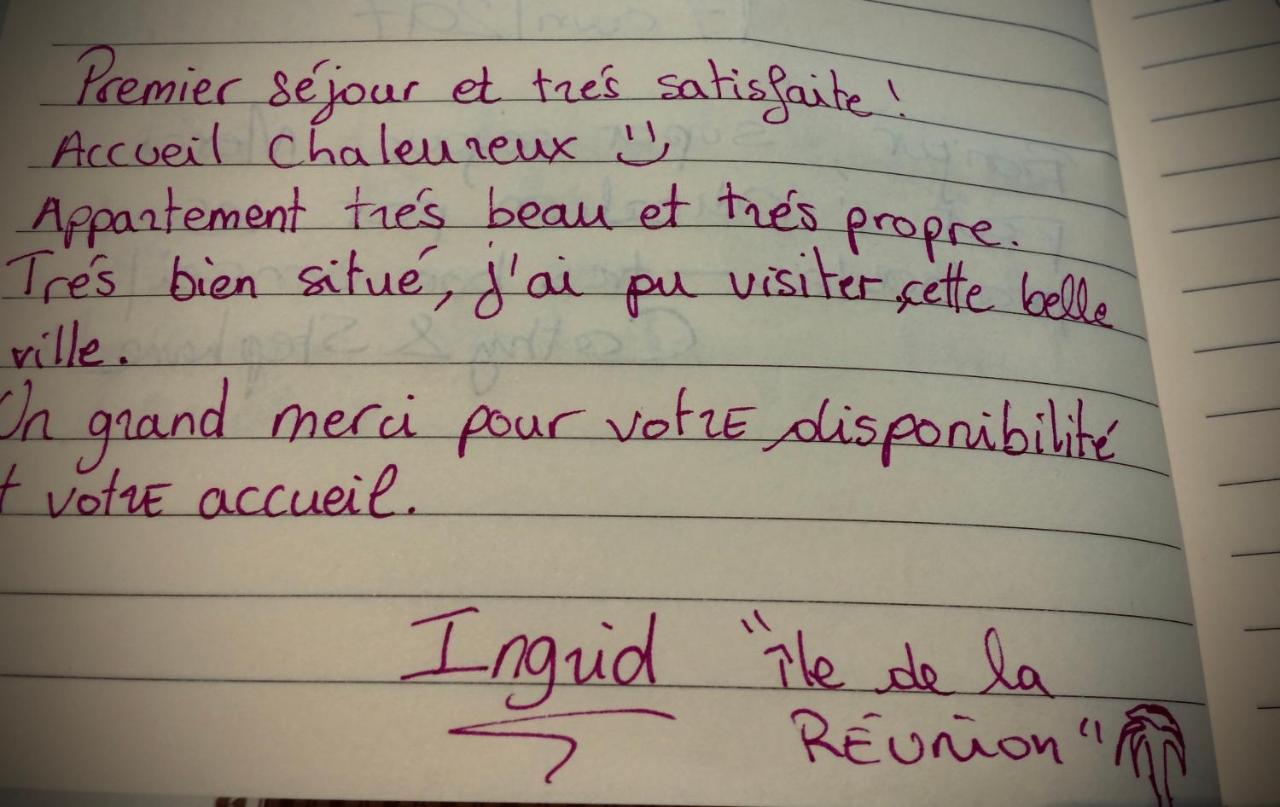 Premier séjour et trés satisfaite !
Accueil Chaleureux
Appartement trés beau et trés propre.
Trés bien situé, j'ai pu visiter cette belle
ville.
Un grand merci pour votre disponibilité
et votre accueil.
Ingrid "île de la
RÉUnion"